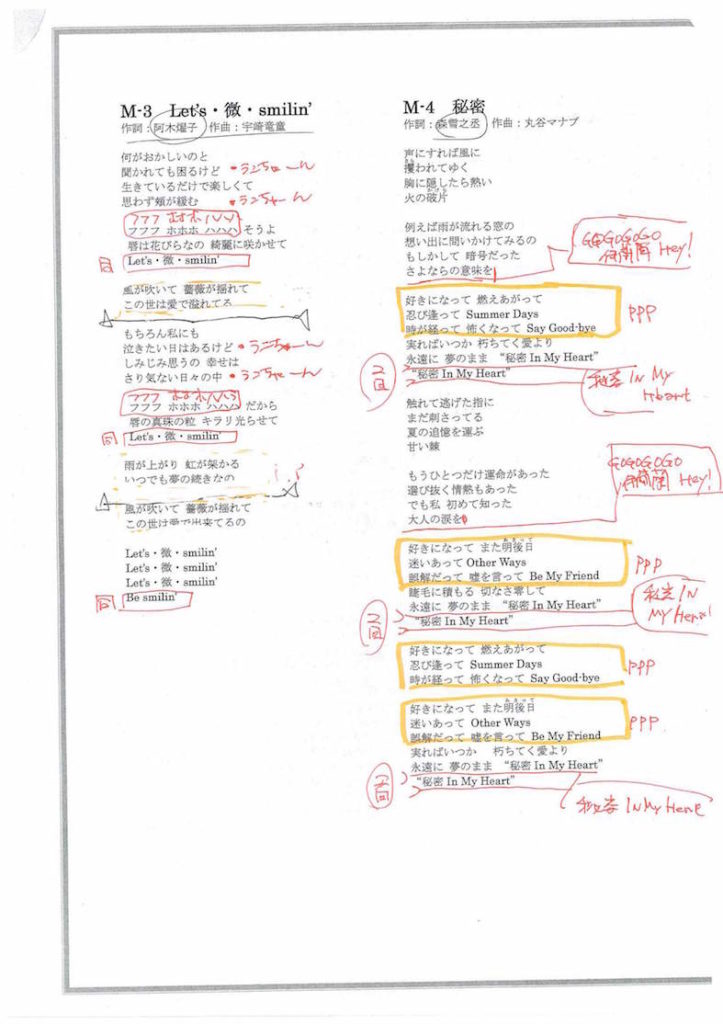 M-3 Let's・微・smilin'
作詞：阿木燿子 作曲：宇崎竜童
何がおかしいのと
聞かれても困るけど ・ランちゃーん
生きているだけで楽しくて
思わず頬が緩む ・ランちゃーん
フフフ ホホホ ハハハ
フフフ ホホホ ハハハ そうよ
唇は花びらなの 綺麗に咲かせて
同 Let's・微・smilin'
風が吹いて 薔薇が揺れて
この世は愛で溢れてる
もちろん私にも
泣きたい日はあるけど ・ランちゃーん
しみじみ思うの 幸せは
さり気ない日々の中 ・ランちゃーん
フフフ ホホホ ハハハ
フフフ ホホホ ハハハ だから
唇の真珠の粒 キラリ光らせて
同 Let's・微・smilin'
雨が上がり 虹が架かる
いつでも夢の続きなの
風が吹いて 薔薇が揺れて
この世は愛で出来てるの
Let's・微・smilin'
Let's・微・smilin'
Let's・微・smilin'
同 Be smilin'
M-4 秘密
作詞：森雪之丞 作曲：丸谷マナブ
声にすれば風に
攫われてゆく
胸に隠したら熱い
火の破片
例えば雨が流れる窓の
想い出に問いかけてみるの
もしかして 暗号だった
さよならの意味を
GOGOGOGO
伊藤蘭 Hey!
好きになって 燃えあがって
忍び逢って Summer Days
PPP
時が経って 怖くなって Say Good-bye
実ればいつか 朽ちてく愛より
永遠に 夢のまま “秘密 In My Heart”
2回 “秘密 In My Heart”
秘密 In My
Heart
触れて逃げた指に
まだ刺さってる
夏の追憶を運ぶ
甘い棘
もうひとつだけ運命があった
選び抜く情熱もあった
でも私 初めて知った
大人の涙を
GOGOGOGO
伊藤蘭 Hey!
好きになって また明後日
迷いあって Other Ways
PPP
誤解だって 嘘を言って Be My Friend
睫毛に積もる 切なさ零して
永遠に 夢のまま “秘密 In My Heart”
2回 “秘密 In My Heart”
秘密 IN
My Heart
好きになって 燃えあがって
忍び逢って Summer Days
PPP
時が経って 怖くなって Say Good-bye
好きになって また明後日
迷いあって Other Ways
PPP
誤解だって 嘘を言って Be My Friend
実ればいつか 朽ちてく愛より
永遠に 夢のまま “秘密 In My Heart”
2回 “秘密 In My Heart”
秘密 IN My Heart